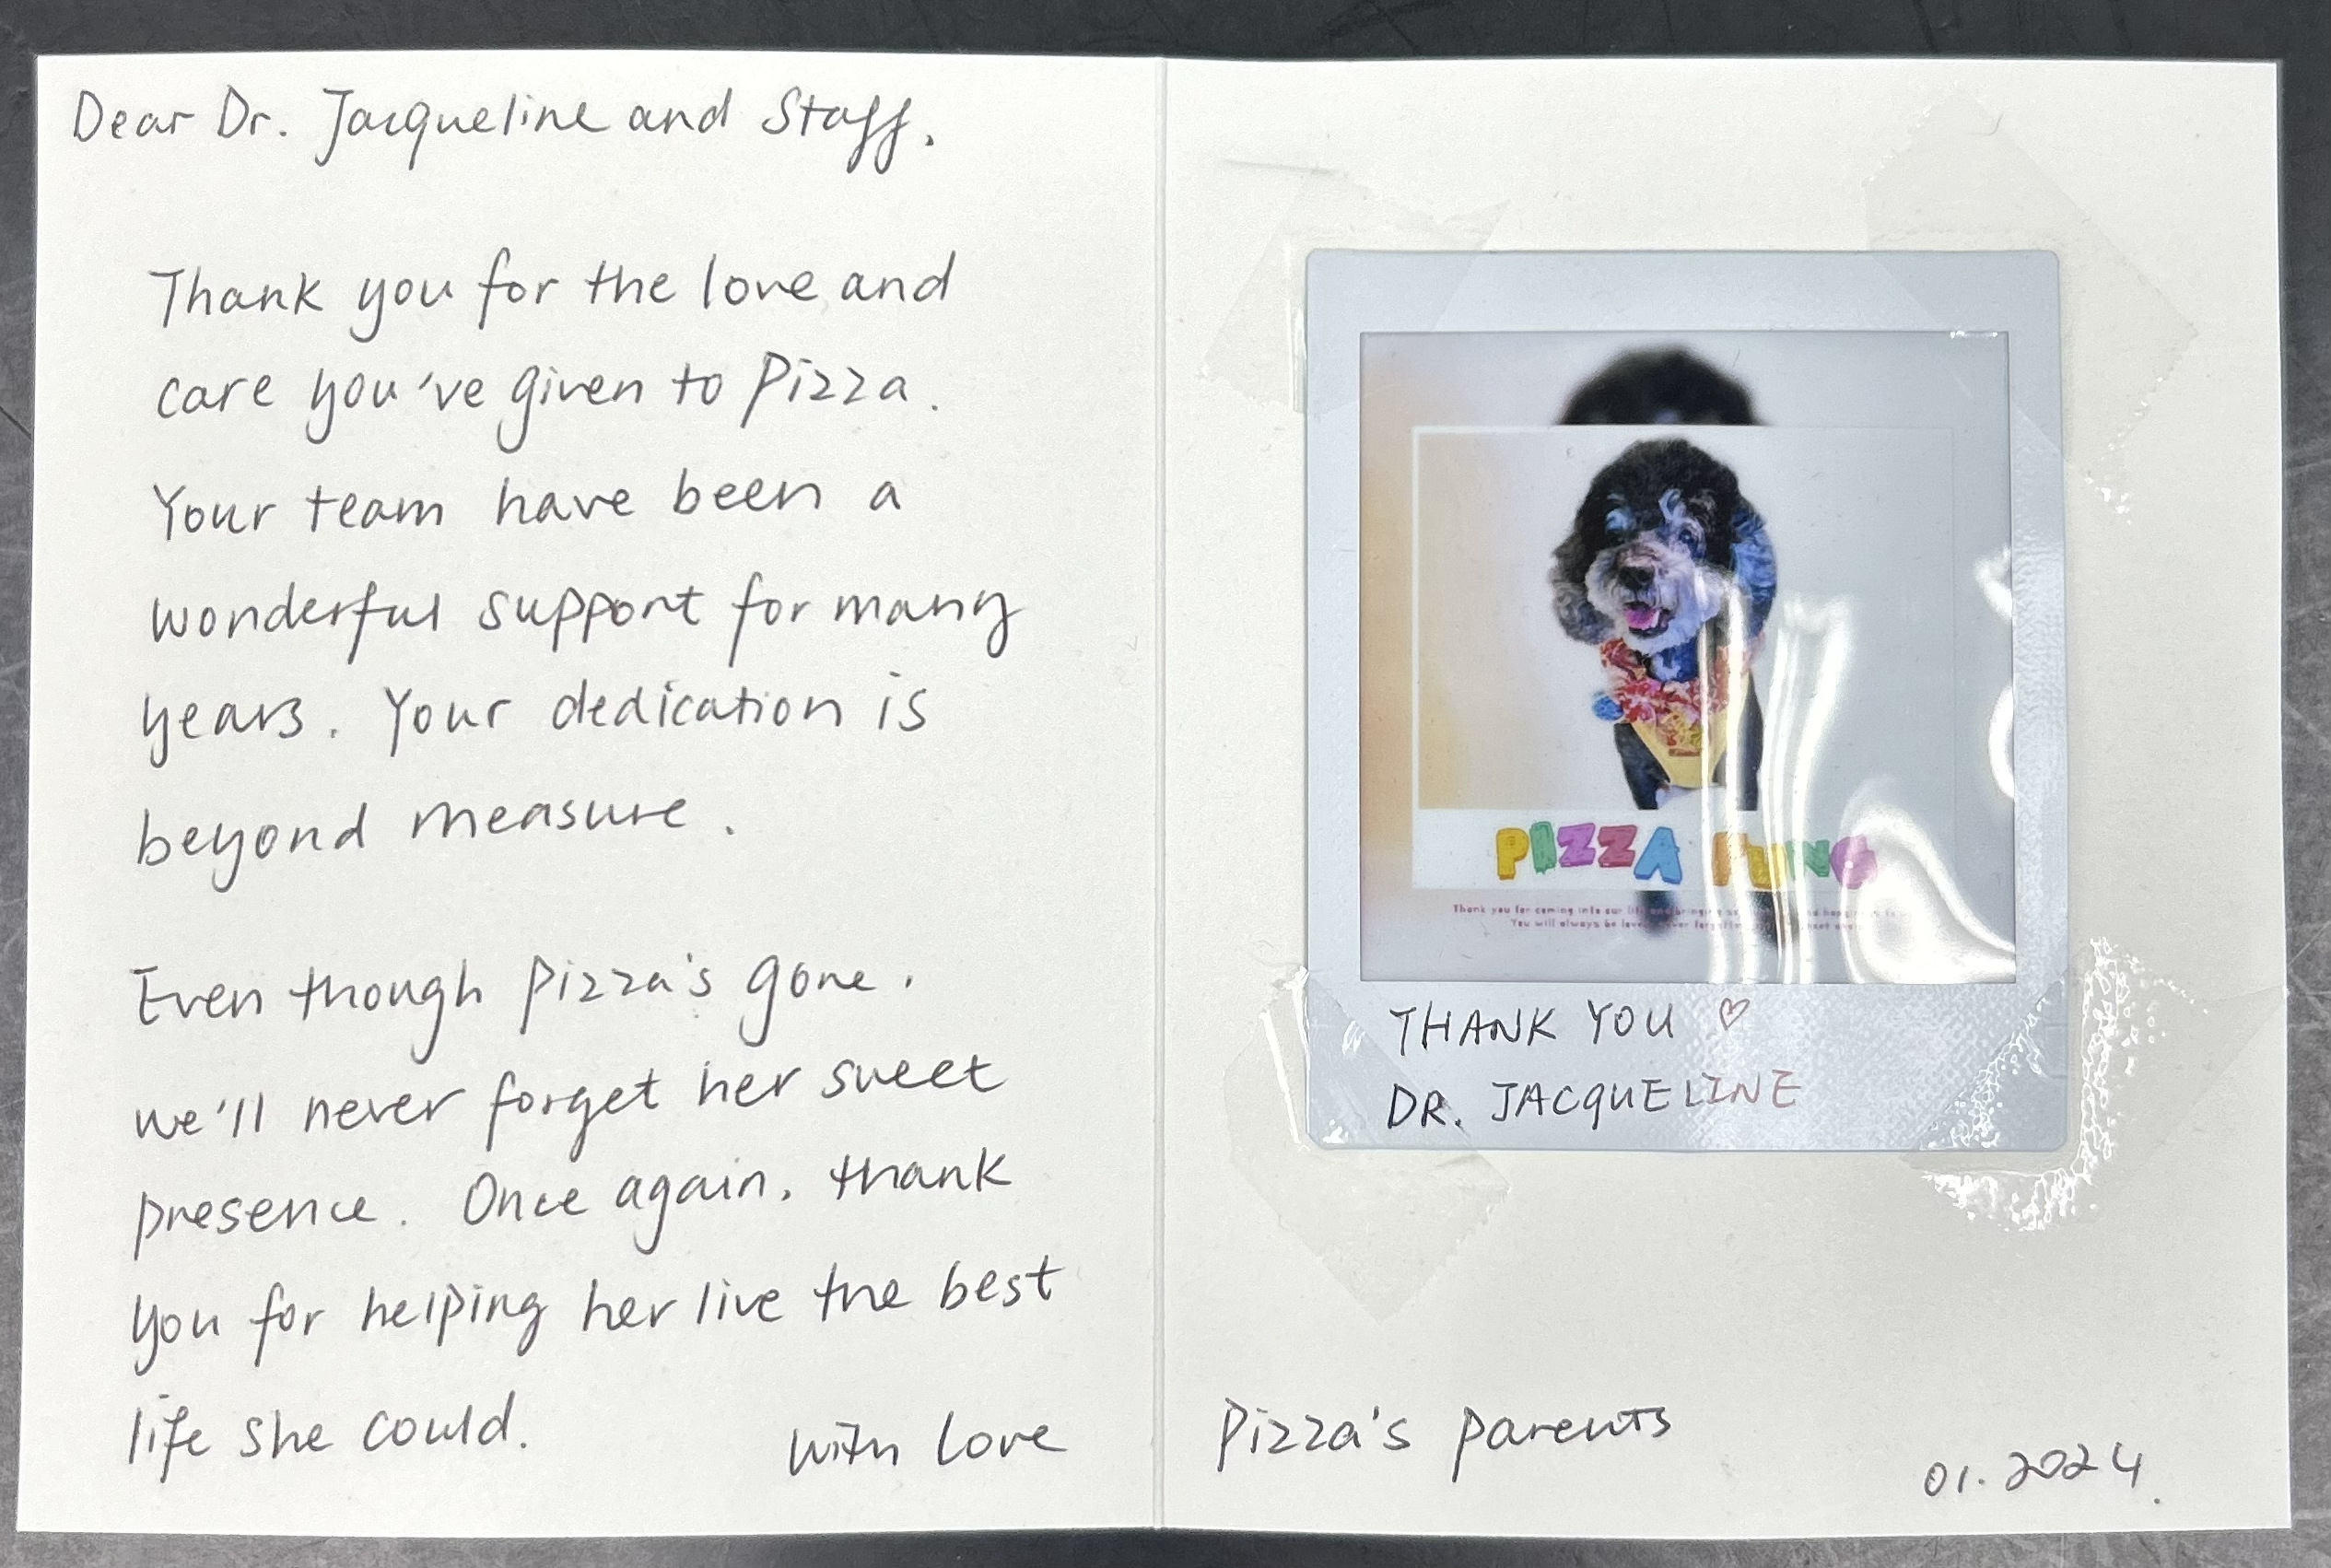 Dear Dr. Jacqueline and Staff,
Thank you for the love and
care you've given to Pizza.
Your team have been a
wonderful support for many
years. Your dedication is
beyond measure.
Even though Pizza's gone,
we'll never forget her sweet
presence. Once again, thank
you for helping her live the best
life she could.
With Love
PIZZA FUNG
Thank you for coming into our life and bringing
You will always be loved never
THANK YOU ♡
DR. JACQUELINE
Pizza's parents
01.2024.